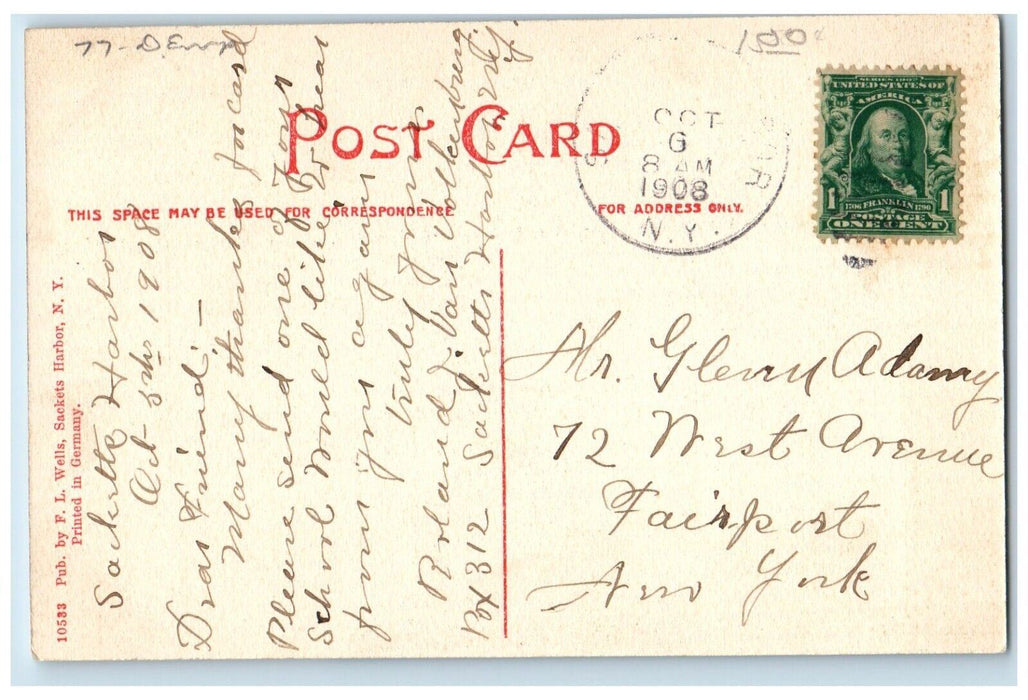 77-
1500
POST CARD
THIS SPACE MAY BE USED FOR CORRESPONDENCE
FOR ADDRESS ONLY.
OCT
6
8 AM
1908
N.Y.
SERIES 1902
UNITED STATES OF
AMERICA
1 1706 FRANKLIN 1790 1
POSTAGE
ONE CENT
10533 Pub. by F. L. Wells, Sackets Harbor, N. Y.
Printed in Germany.
Sacketts Harbor
Oct- 5ths 1908
Dear Friend:-
Many thanks for card
Please send one of your
School Would like to hear
from you again
truly yours
Roland J. Van Valkenburg
Box 312 Sacketts Harbor N.Y.
Mr. Glenn Adamy
72 West Avenue
Fairport
New York